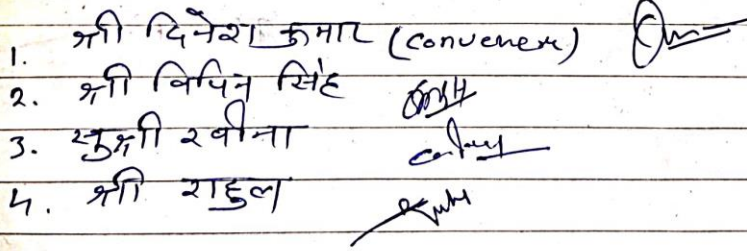 1. श्री दिनेश कुमार (convener)
2. श्री विपिन सिंह
3. सुश्री रवीना
4. श्री राहुल